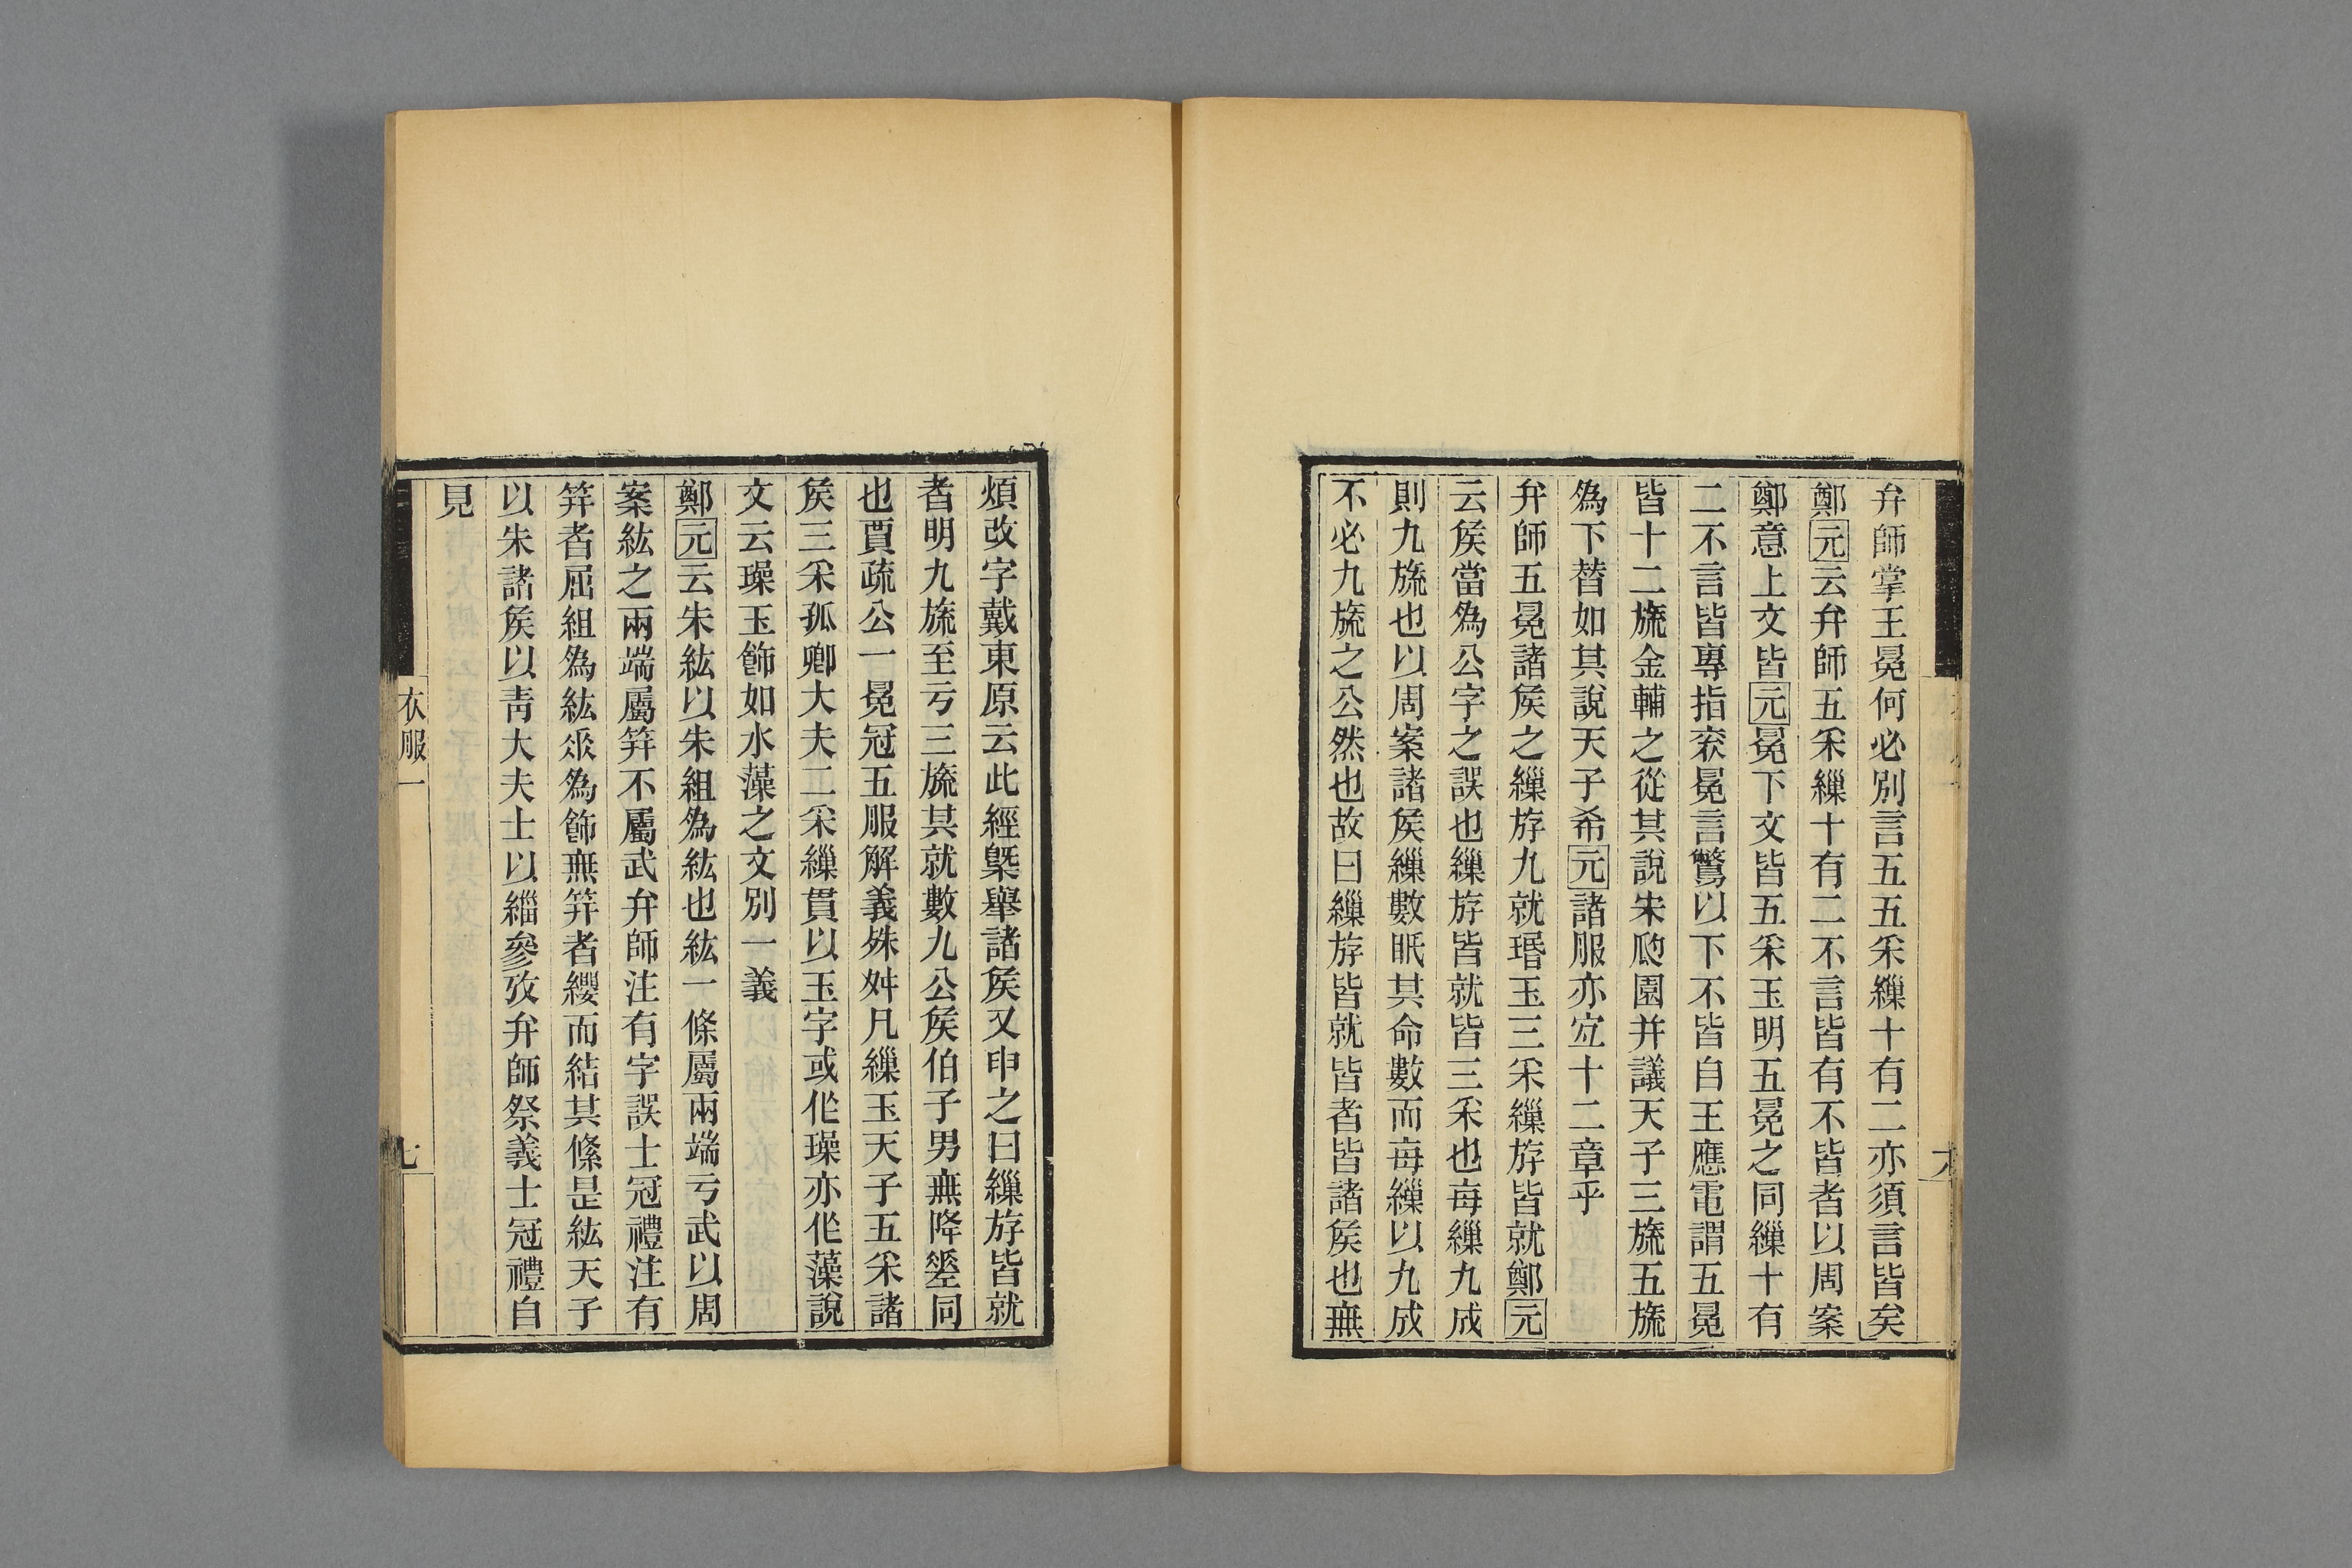 弁師掌王冕何必別言五五采繅十有二亦須言皆矣
鄭元云弁師五采繅十有二不言皆有不皆者以周案
鄭意上文皆元冕下文皆五采玉明五冕之同繅十有
二不言皆專指衮冕言鷩以下不皆自王應電謂五冕
皆十二旒金輔之從其說宋㼎園并議天子三旒五旒
爲下替如其說天子希元諸服亦宐十二章乎
弁師五冕諸矦之繅斿九就瑉玉三采繅斿皆就鄭元
云矦當爲公字之誤也繅斿皆就皆三采也每繅九成
則九旒也以周案諸矦繅數眂其命數而每繅以九成
不必九旒之公然也故曰繅斿皆就皆者皆諸矦也無
煩改字戴東原云此經槩舉諸矦又申之曰繅斿皆就
者明九旒至亏三旒其就數九公矦伯子男無降䇘同
也賈疏公一冕冠五服解義殊舛凡繅玉天子五采諸
矦三采孤卿大夫二采繅貫以玉字或作璪亦作藻說
文云璪玉飾如水藻之文別一義
鄭元云朱紘以朱組爲紘也紘一條屬兩端亏武以周
案紘之兩端屬笄不屬武弁師注有字誤士冠禮注有
笄者屈組爲紘𠂢爲飾無笄者纓而結其絛是紘天子
以朱諸矦以靑大夫士以緇參攷弁師祭義士冠禮自
見
衣服一
七